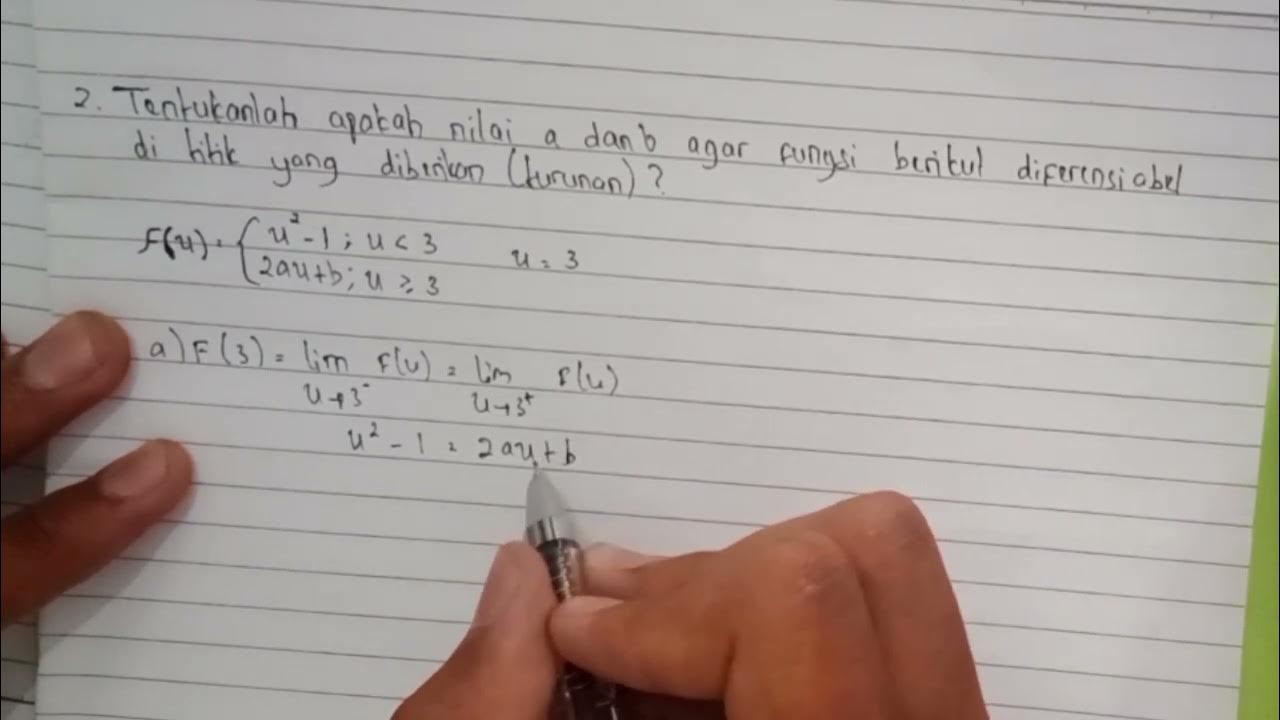 2. Tentukanlah apakah nilai a dan b agar fungsi berikut diferensiabel
di titik yang diberikan (turunan)?
F(u) = { u² - 1 ; u < 3
2au + b ; u ≥ 3
u = 3
a) F(3) = lim f(u) = lim f(u)
u→3⁻ u→3⁺
u² - 1 = 2au + b